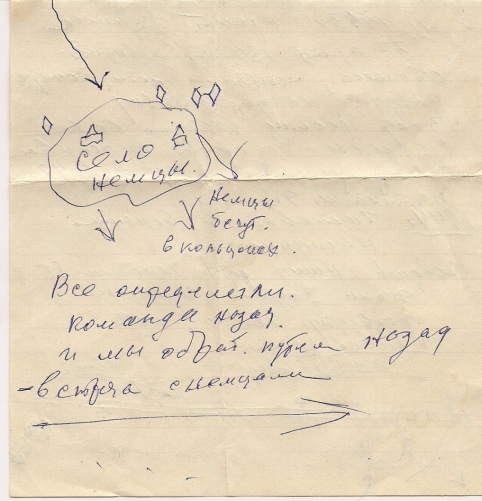 село
немцы.
Немцы
бегут.
в кольцо
Все определили.
команда назад.
и мы обрат. путем назад
- встреча с немцами